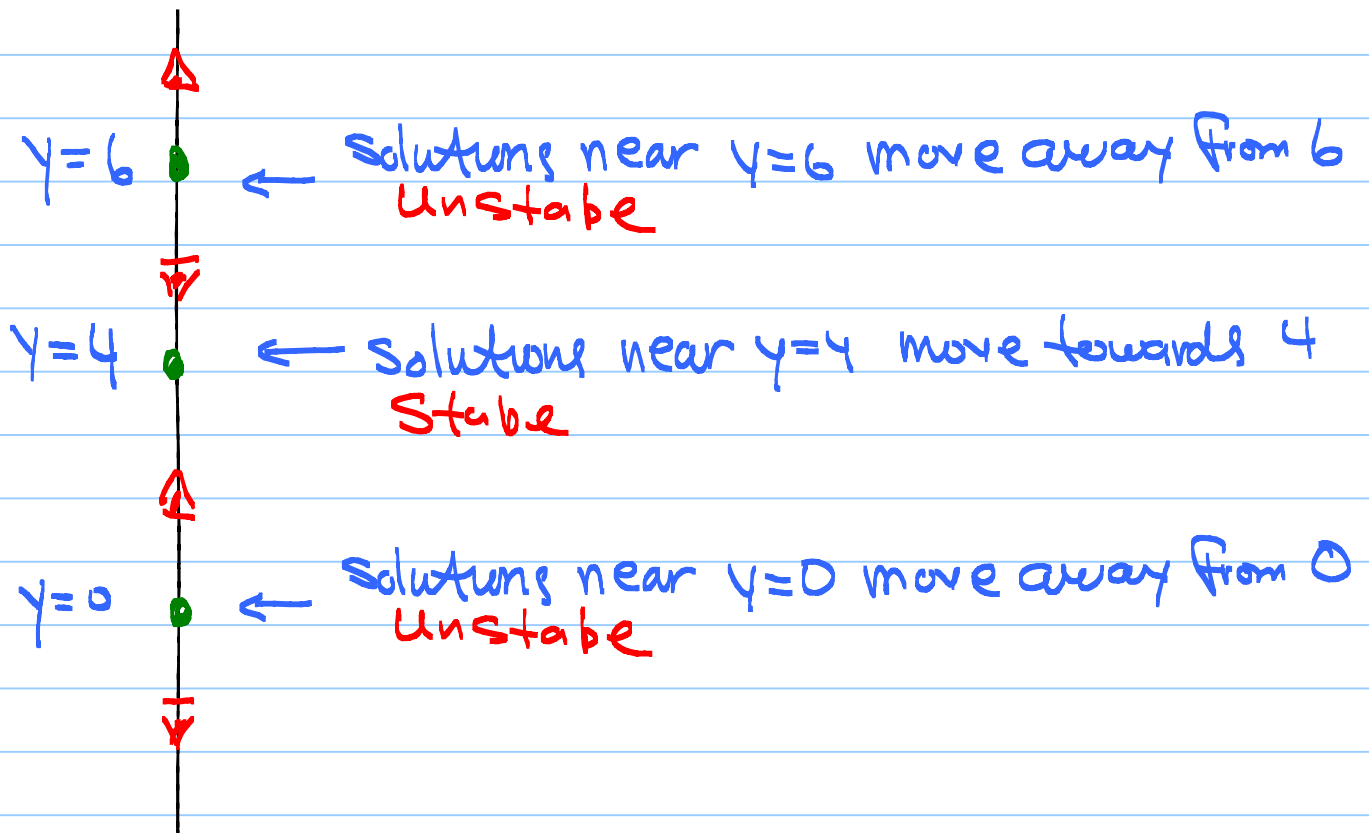 y=6 ← solutions near y=6 move away from 6
Unstabe
y=4 ← solutions near y=4 move towards 4
Stabe
y=0 ← solutions near y=0 move away from 0
Unstabe